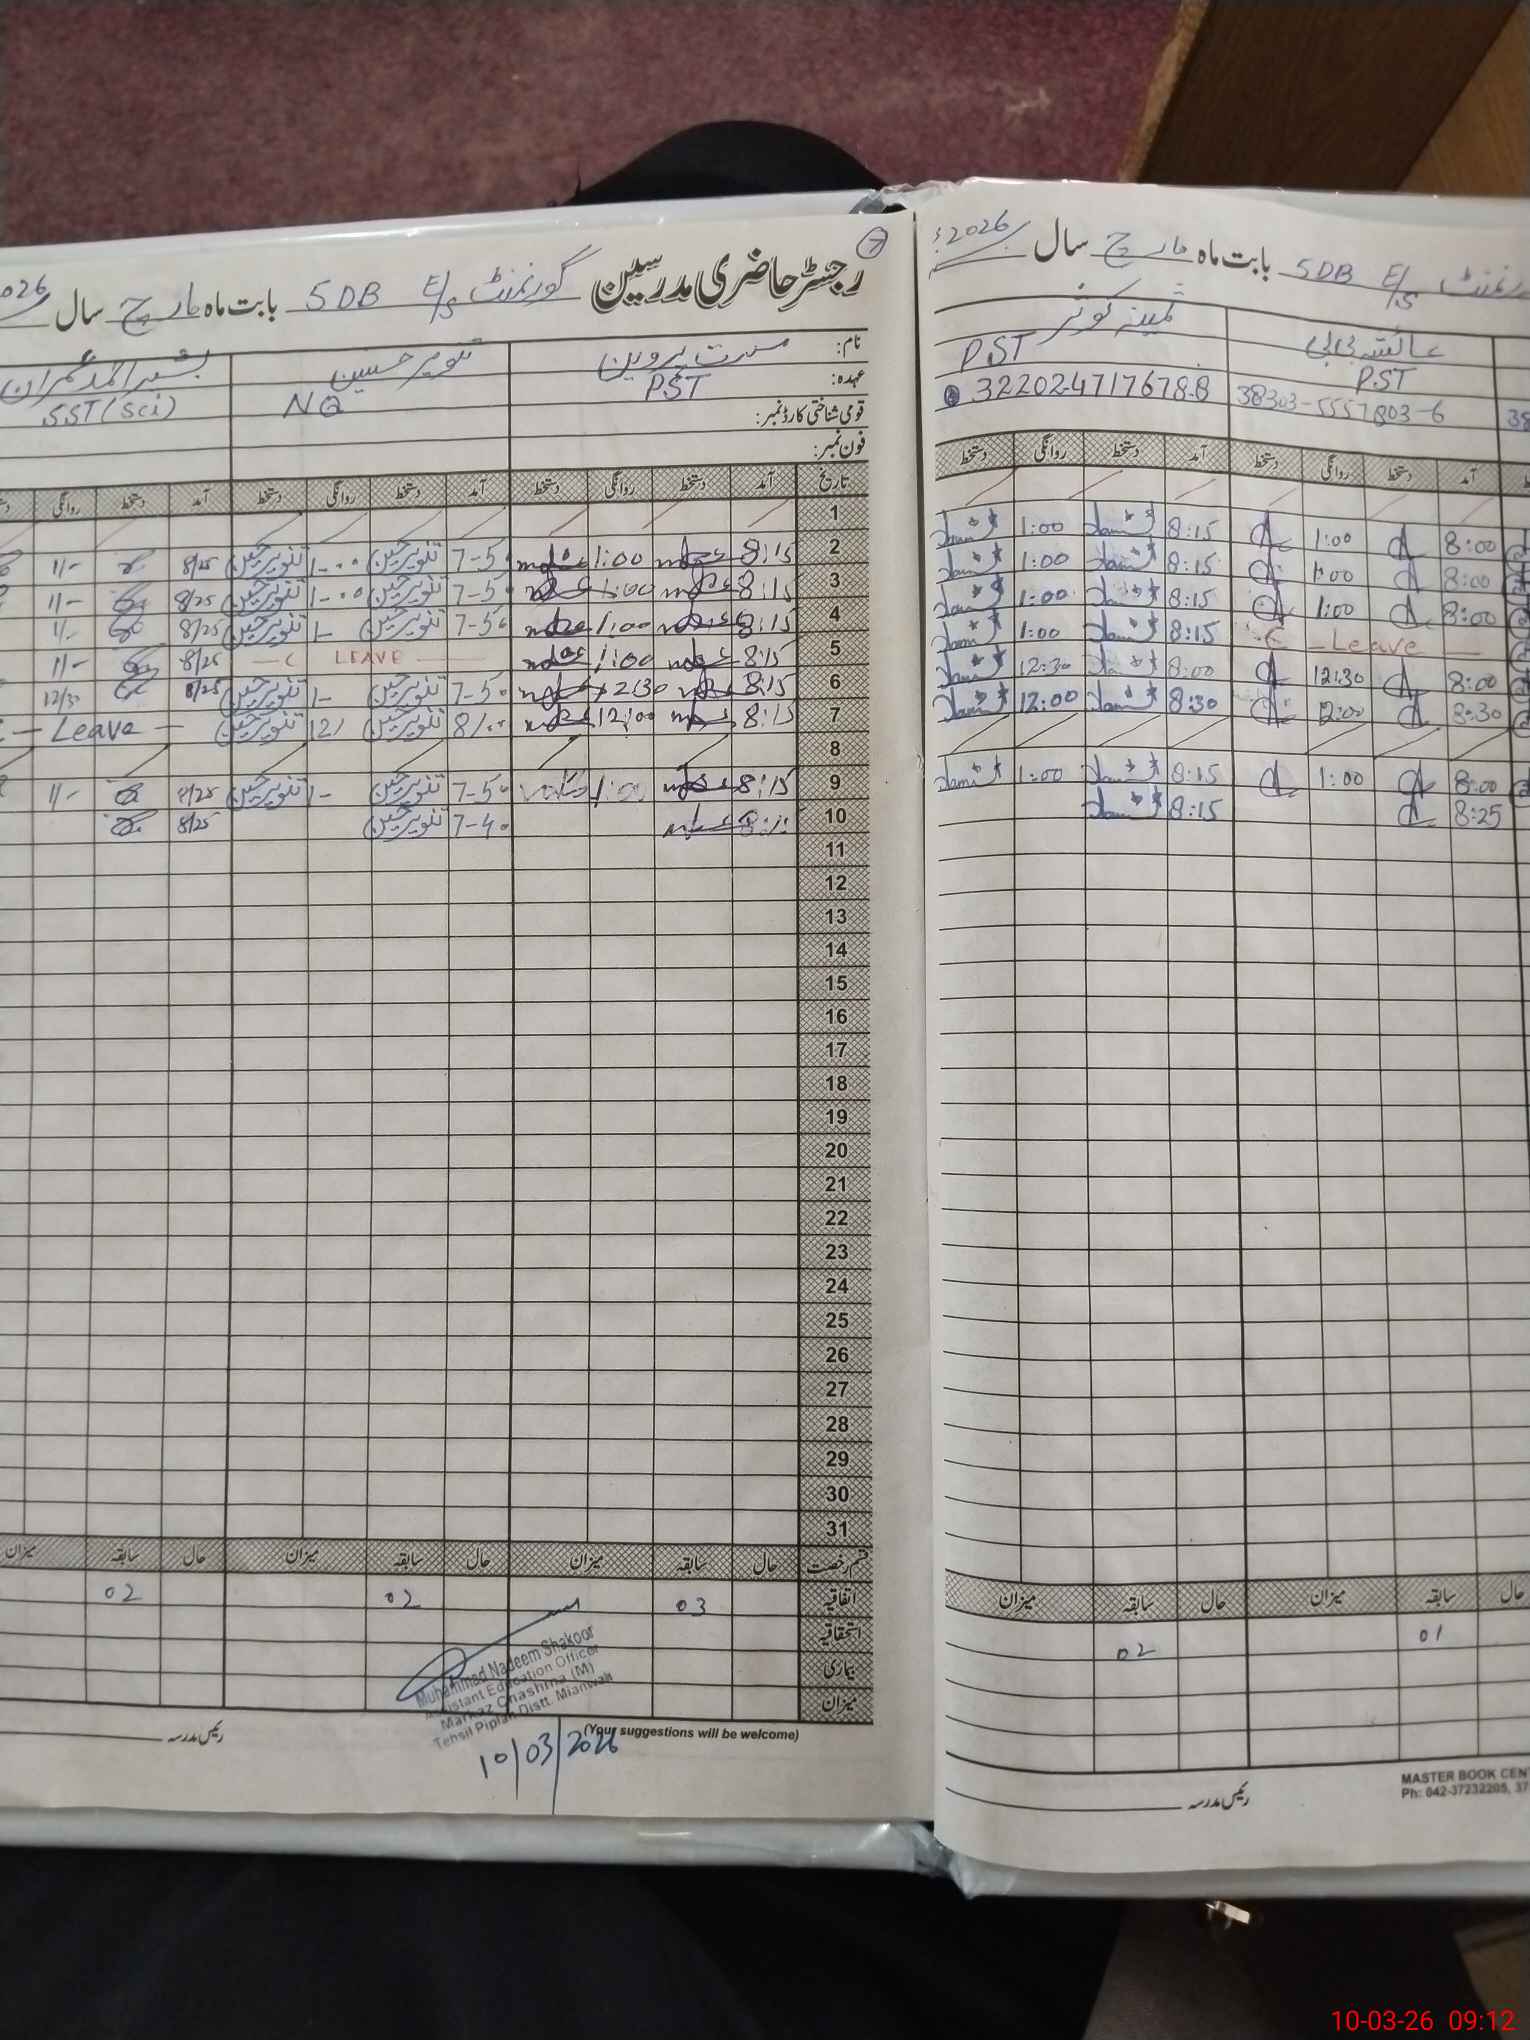 رجسٹر حاضری مدرسین گورنمنٹ E/S SDB بابت ماہ مارچ سال 2026
7
نام: مسرت پروین تنویر حسین
عہدہ: PST NQ SST (Sci)
قومی شناختی کارڈ نمبر:
فون نمبر:
تاریخ آمد دستخط روانگی دستخط آمد دستخط روانگی دستخط آمد دستخط روانگی
1
2 8:15 1:00 7-50 تنویر حسین تنویر حسین 8/25 1/-
3 8:15 1:00 7-50 تنویر حسین تنویر حسین 8/25 1/-
4 8:15 1:00 7-50 تنویر حسین 1- تنویر حسین 8/25 1/-
5 8:15 1:00 LEAVE 8/25 1/-
6 8:15 12:30 7-50 تنویر حسین 1- تنویر حسین 8/25 12/30
7 8:15 12:00 8/-- تنویر حسین 12/ تنویر حسین Leave
8
9 8:15 1:00 7-50 تنویر حسین 1- تنویر حسین 8/25 1/-
10 7-40 تنویر حسین 8/25
11
12
13
14
15
16
17
18
19
20
21
22
23
24
25
26
27
28
29
30
31
قسم رخصت حال سابقہ میزان حال سابقہ میزان حال سابقہ میزان
اتفاقیہ 03 02 02
استحقاقیہ
بیماری
میزان
Muhammad Nadeem Shakoor
Assistant Education Officer
Markaz Chashma (M)
Tehsil Piplan Distt. Mianwali
(Your suggestions will be welcome)
10/03/2026
رئیس مدرسہ
E/S SDB بابت ماہ مارچ سال 2026
عائشہ بی بی ثمینہ کوثر
PST PST
38303-5557803-6 32202-4717678-8
آمد دستخط روانگی دستخط آمد دستخط روانگی دستخط
8:00 1:00 8:15 1:00
8:00 1:00 8:15 1:00
8:00 1:00 8:15 1:00
Leave 8:15 1:00
8:00 12:30 8:00 12:30
8:30 12:00 8:30 12:00
8:00 1:00 8:15 1:00
8:25 8:15
حال سابقہ میزان حال سابقہ میزان
01 02
MASTER BOOK CEN
Ph: 042-37232205, 37
رئیس مدرسہ
10-03-26 09:12